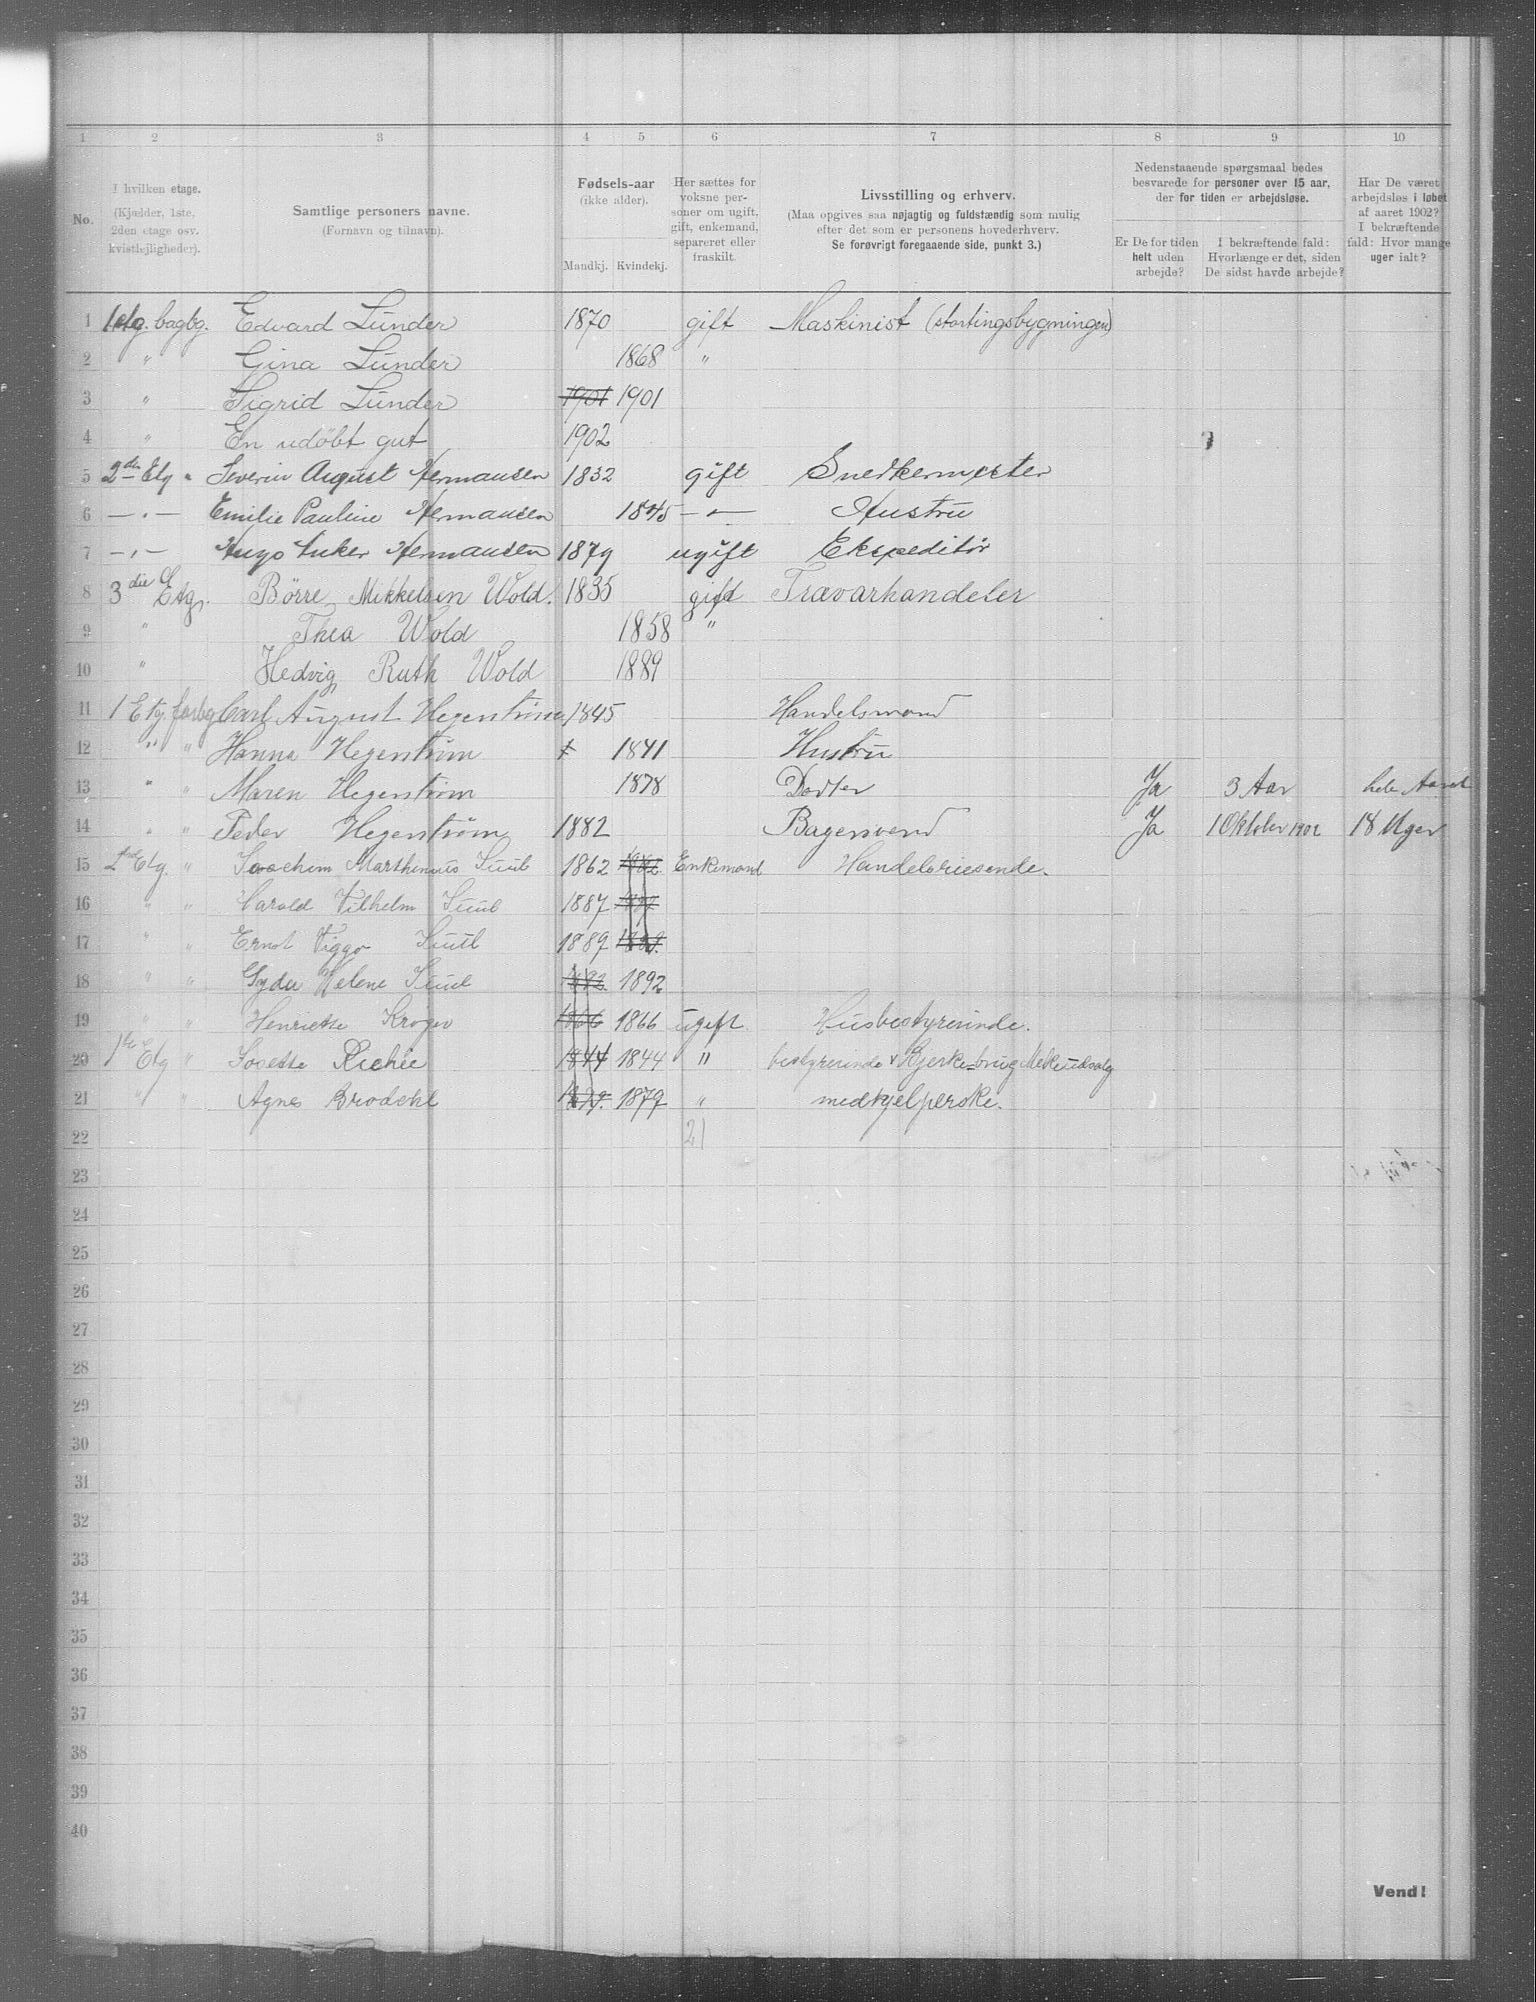 1 2 3 4 5 6 7 8 9 10
No.
I hvilken etage.
(Kjælder, 1ste,
2den etage osv.
kvistlejligheder).
Samtlige personers navne.
(Fornavn og tilnavn).
Fødsels-aar
(ikke alder).
Mandkj. Kvindekj.
Her sættes for
voksne per-
soner om ugift,
gift, enkemand,
separeret eller
fraskilt.
Livsstilling og erhverv.
(Maa opgives saa nøjagtig og fuldstændig som mulig
efter det som er personens hovederhverv.
Se forøvrigt foregaaende side, punkt 3.)
Nedenstaaende spørgsmaal bedes
besvarede for personer over 15 aar,
der for tiden er arbejdsløse.
Er De for tiden
helt uden
arbejde?
I bekræftende fald:
Hvorlænge er det, siden
De sidst havde arbejde?
Har De været
arbejdsløs i løbet
af aaret 1902?
I bekræftende
fald: Hvor mange
uger ialt?
1 1 etg. bagbg. Edvard Lunder 1870 gift Maskinist (stortingsbygningen)
2 " Gina Lunder 1868 "
3 " Sigrid Lunder 1901 1901
4 " En udøbt gut 1902
5 2den Etg " Severin August Hermansen 1832 gift Snedkermester
6 — " — Emilie Pauline Hermansen 1845 — " — Hustru
7 — " — Hugo Hermansen 1879 ugift Ekspeditør
8 3die Etg. Børre Mikkelsen Wold. 1835 gift Trævarhandeler
9 " Thea Wold 1858 "
10 " Hedvig Ruth Wold 1889
11 1 Etg forbg Carl August Hegerstrøm 1845 Handelsmand
12 " " Hanna Hegerstrøm 1841 Hustru
13 " " Maren Hegerstrøm 1878 Dotter Ja 3 Aar hele Aaret
14 " " Peder Hegerstrøm 1882 Bagersvend Ja 1 Oktober 1902 18 Uger
15 Etg. " Joachim Marthinius Juul 1862 1862 Enkemand Handelsriesende.
16 " " Harald Vilhelm Juul 1887 1887
17 " " Ernst Viggo Juul 1889 1889.
18 " " Gyda Helene Juul 1892 1892
19 " " Henriette Kroger 1866 1866 ugift Husbestyrerinde.
20 1ste Etg " Josette Richie 1844 1844 " bestyrerinde v Bjerke-brug Melkeudsalg
21 " " Agnes Brodahl 1879. 1879 " medhjelperske.
22 21
23
24
25
26
27
28
29
30
31
32
33
34
35
36
37
38
39
40
Vend!